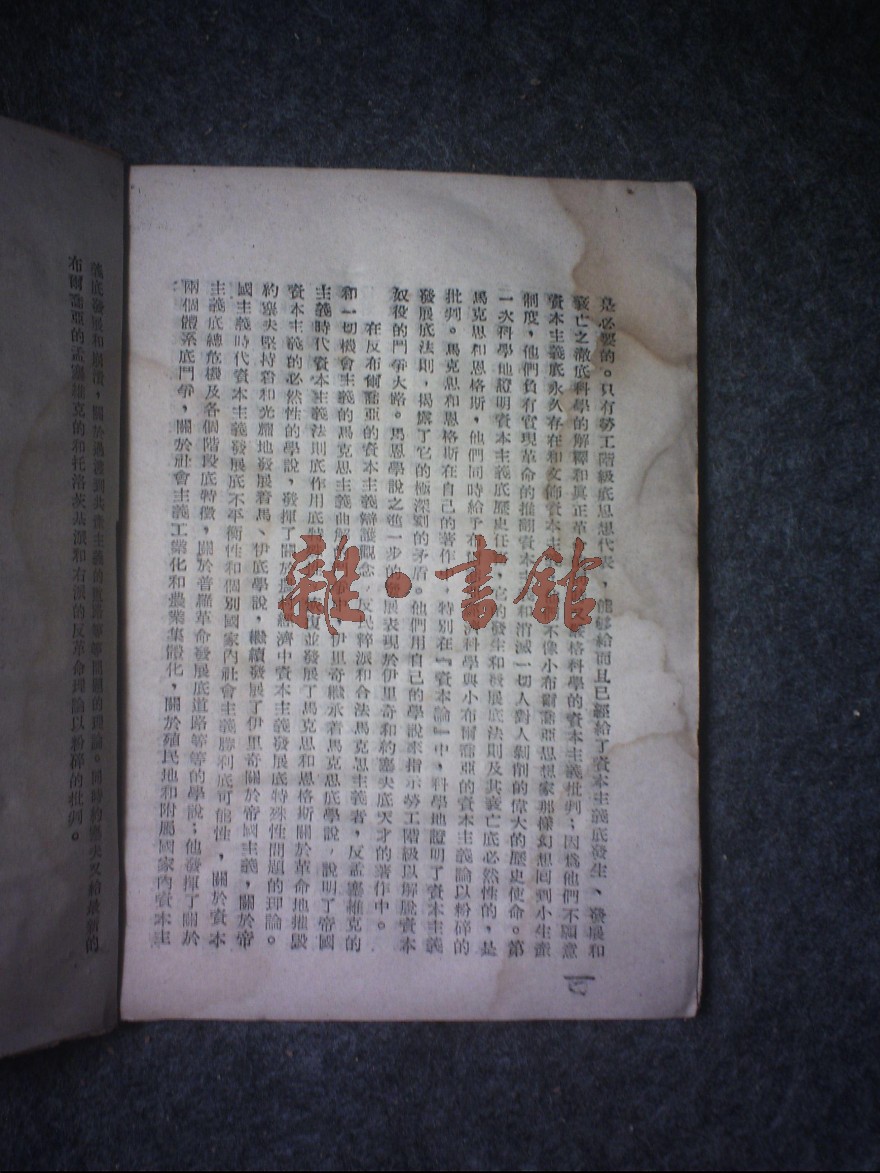 是必要的。只有勞工階級底思想代表，能够給而且已經給了資本主義底發生、發展和
衰亡之徹底科學的解釋和真正革 嚴格科學的資本主義批判；因爲他們不願意
資本主義底永久存在和文飾資本主 不像小布爾喬亞思想家那樣幻想回到小生產
制度，他們負有實現革命的推翻資本 和消滅一切人對人剝削的偉大的歷史使命。第
一次科學地證明資本主義底歷史任 ，它 發生和發展底法則及其衰亡底必然性的，是
馬克思和恩格斯，他們同時給予布 濟科學與小布爾喬亞的資本主義論以粉碎的
批判。馬克思和恩格斯在自己的著作 ，特別在『資本論』中，科學地證明了資本主義
發展底法則，揭露了它的極深刻的矛盾。他們用自己的學說來指示勞工階級以解脫資本
奴役的鬥爭大路。馬恩學說之進一步的發展表現於伊里奇和約塞夫底天才的著作中。
在反布爾喬亞的資本主義辯護觀念，反民粹派和合法馬克思主義者，反孟塞維克的
和一切機會主義的馬克思主義曲解 爭中，伊里奇繼承着馬克思底學說，說明了帝國
主義時代資本主義法則底作用底特 復並發展了馬克思和恩格斯關於革命地摧毀
資本主義的必然性的學說，發揮了關於 經濟中資本主義發展底特殊性問題的理論。
約塞夫堅持着和光輝地發展着馬、伊底學說，繼續發展了伊里奇關於帝國主義，關於帝
國主義時代資本主義發展底不平衡性和個別國家內社會主義勝利底可能性，關於資本
主義底總危機及各個階段底特徵，關於普羅革命發展底道路等等的學說；他發揮了關於
兩個體系底鬥爭，關於社會主義工業化和農業集體化，關於殖民地和附屬國家內資本主
義底發展和崩潰，關於過渡到共產主義的道路等等問題的理論。同時約塞夫又給最新的
布爾喬亞的孟塞維克的和托洛茨基派和右派的反革命理論以粉碎的批判。
雜·書館